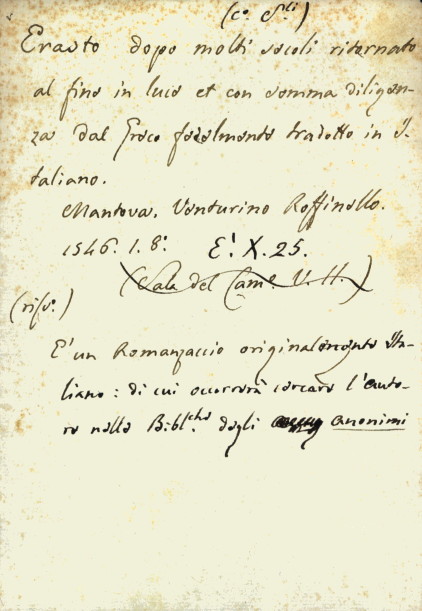 Erasto dopo molti secoli ritornato
al fine in luce et con somma diligen-
za dal Greco fedelmente tradotto in I-
taliano.
Mantova, Venturino Roffinello.
1546. 1. 8.° E. X. 25.
(Sala del Cam.° V. H.)
E' un Romanzaccio originalmente Ita-
liano: di cui occorrerà cercare l'auto-
re nelle Bibl.che degli anonimi